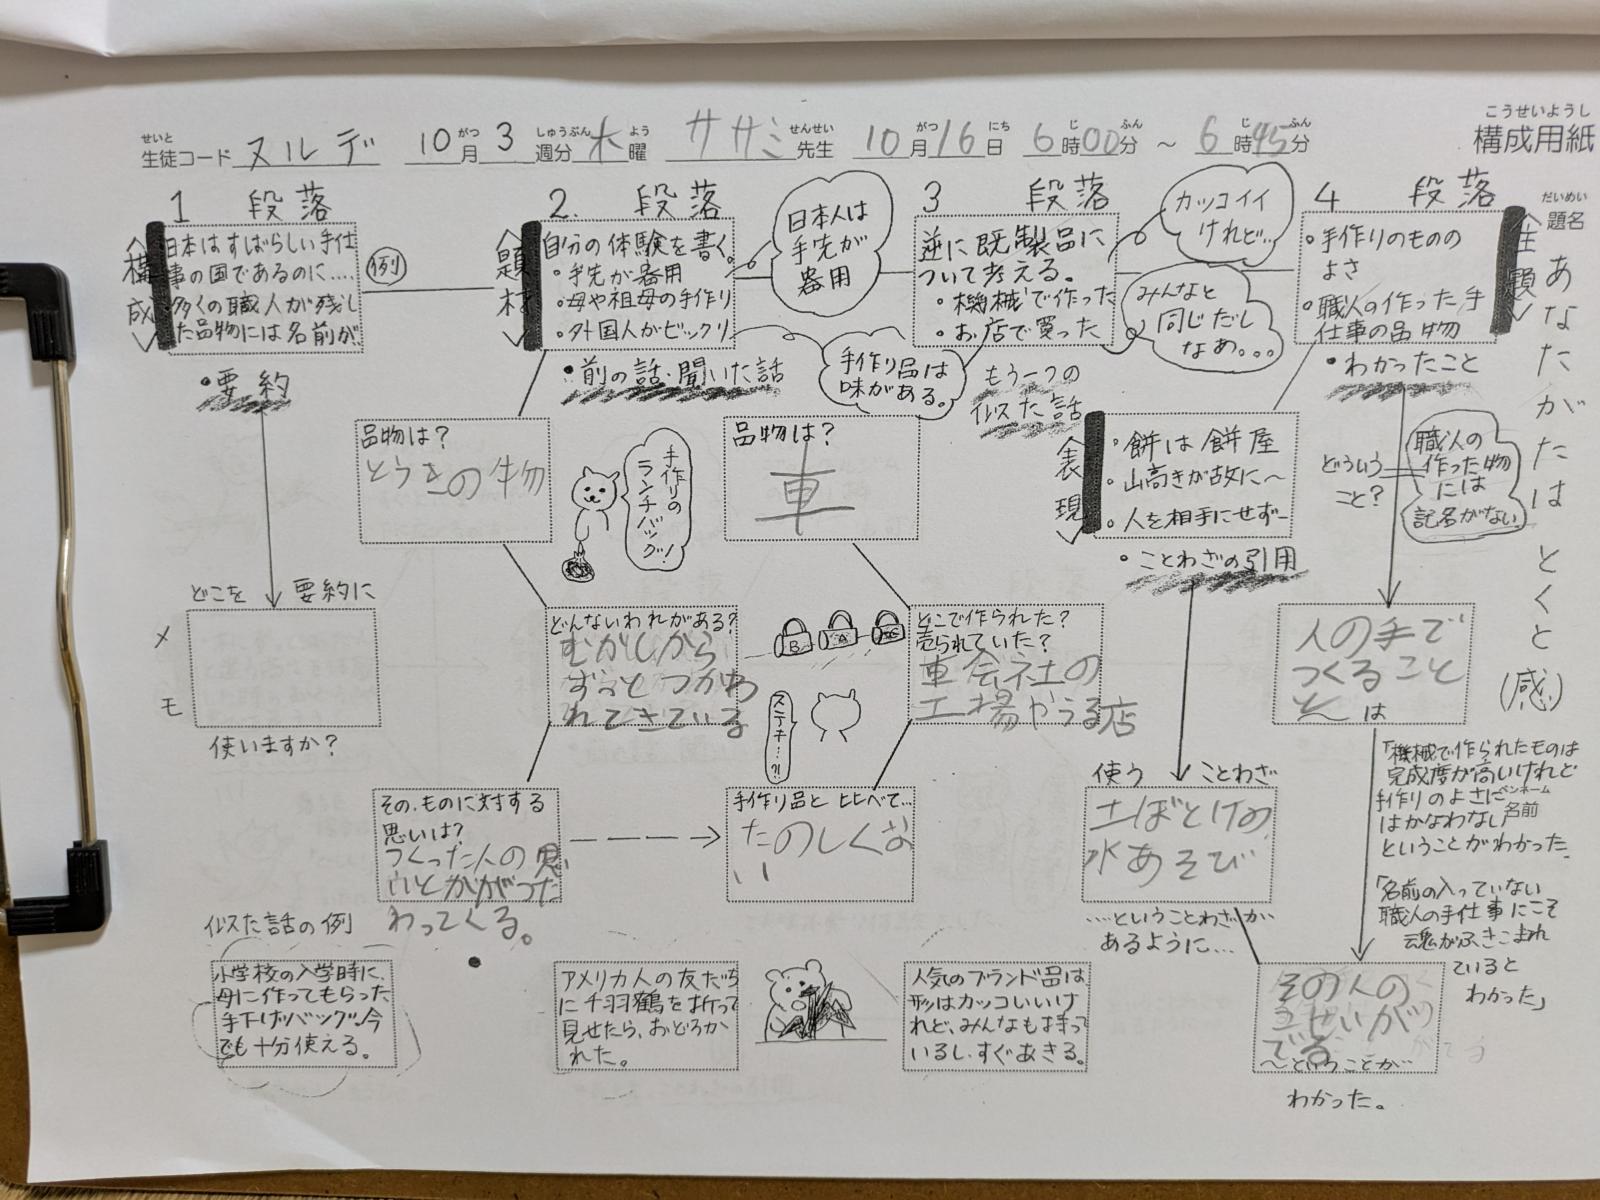 こうせいようし
構成用紙
せいと
生徒コード ヌルデ 10月 3週分 木曜 ササミ先生 10月16日 6時00分 ～ 6時45分
がつ しゅうぶん よう せんせい がつ にち じ ふん じ ふん
だいめい
題名
あなたがたはとくと(感)
1 段落
構成
日本はすばらしい手仕
事の国であるのに....
多くの職人が残し
た品物には名前が
例
・要約
どこを要約に
メモ
使いますか?
2. 段落
題材
自分の体験を書く。
・手先が器用
・母や祖母の手作り
・外国人がビックリ
日本人は
手先が
器用
・前の話・聞いた話
手作り品は
味がある。
品物は?
とうきの物
手作りの
ランチバッグ!
どんないわれがある?
むかしから
ずっとつかわ
れてきている
B
A
ステキ…?!
その、ものに対する
思いは?
つくった人の思
いとかがつた
わってくる。
3 段落
逆に既製品に
ついて考える。
・機械で作った
・お店で買った
カッコイイ
けれど...
みんなと
同じだし
なぁ。。。
もう一つの
似た話
品物は?
車
どこで作られた?
売られていた?
車会社の
工場やうる店
手作り品と比べて...
たのしくな
い
4 段落
主題
・手作りのものの
よさ
・職人の作った手
仕事の品物
・わかったこと
表現
・餅は餅屋
・山高きが故に～
・人を相手にせず-
・ことわざの引用
どういう
こと?
職人の
作った物
には
記名がない
使う ことわざ
土ぼとけの
水あそび
....ということわざが
あるように...
人の手で
つくること
は
「機械で作られたものは
完成度が高いけれど
手作りのよさに
はかなわない
ということがわかった。
ペンネーム
名前
「名前の入っていない
職人の手仕事にこそ
魂がふきこまれ
ていると
わかった」
その人の
こせいが
でる
～ということが
わかった。
似た話の例
小学校の入学時に、
母に作ってもらった
手下げバッグ。今
でも十分使える。
アメリカ人の友だち
に千羽鶴を折って
見せたら、おどろか
れた。
人気のブランド品は、
形はカッコいいけ
れど、みんなも持って
いるし、すぐあきる。